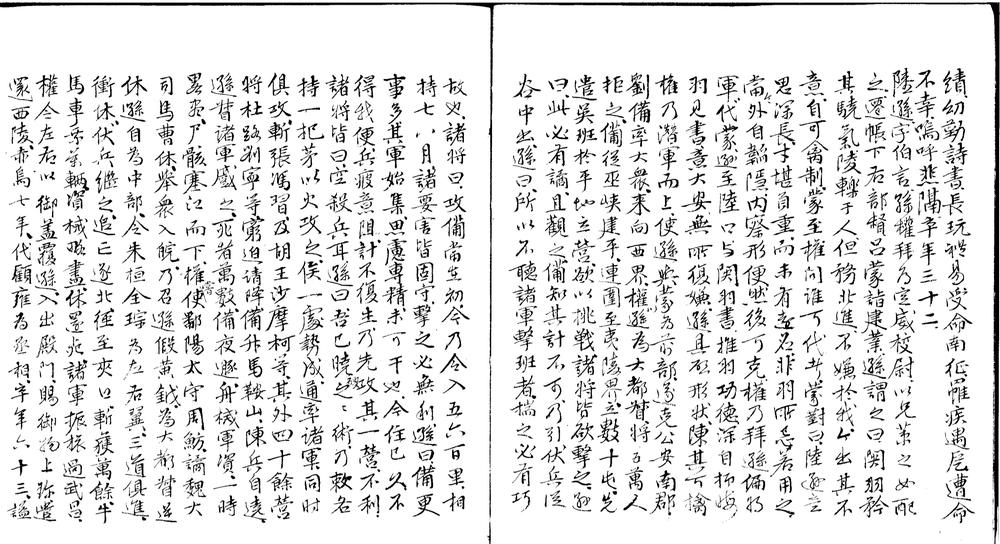 績幼勤詩書長玩禮易受命南征罹疾遇厄遭命
不幸嗚呼悲隔卒年三十二
陸遜字伯言孫權拜爲定威校尉以兄策之女配
之還帳下右部督呂蒙詣建業遜謂之曰関羽矜
其驍氣陵轢于人但務北進不嫌於我今出其不
意自可禽制蒙至權問誰可代者蒙對曰陸遜意
思深長才堪負重而未有遠名非羽所忌若用之
當外自韜隱內察形便然後可克權乃拜遜偏將
軍代蒙遜至陸口与関羽書推羽功德深自抑悔
羽見書意大安無所復嫌遜具啓形狀陳其可擒
權乃潛軍而上使遜與蒙為前部遂克公安南郡
劉備率大衆来向西界權遜為大都督將五萬人
拒之備從巫峽建平連圍至夷陵界立數十屯先
遣吳班於平地立營欲以挑戰諸將皆欲擊之遜
曰此必有譎且觀之備知其計不可乃引伏兵從
谷中出遜曰所以不聽諸軍擊班者揣之必有巧
故也諸將曰攻備當在初今乃令入五六百里相
持七八月諸要害皆固守擊之必無利遜曰備更
事多其軍始集思慮專精未可干也今住已久不
得我便兵疲意阻計不復生乃先攻其一營不利
諸將皆曰空殺兵耳遜曰吾已曉之術乃敕各
持一把茅以火攻之俟一處勢成通率諸軍同时
俱攻斬張馮習及胡王沙摩柯等其外四十餘營
將杜路劉寧等窮迫请降備升馬鞍山陳兵自遶
遜督諸軍蹙之死者萬數備夜遁舟械軍資一時
畧盡尸骸塞江而下權嘗使鄱陽太守周魴譎魏大
司馬曹休舉衆入皖乃召遜假黃鉞為大都督逆
休遜自為中部令朱桓全琮為左右翼三道俱進
衝休伏兵繼之追亡逐北徑至夾口斬獲萬餘牛
馬車乗萬輌資械略盡休還死諸軍振旅過武昌
權令左右以御盖覆遜入出殿門賜御物上珍
還西陵赤烏七年代顧雍為丞相卒年六十三謚